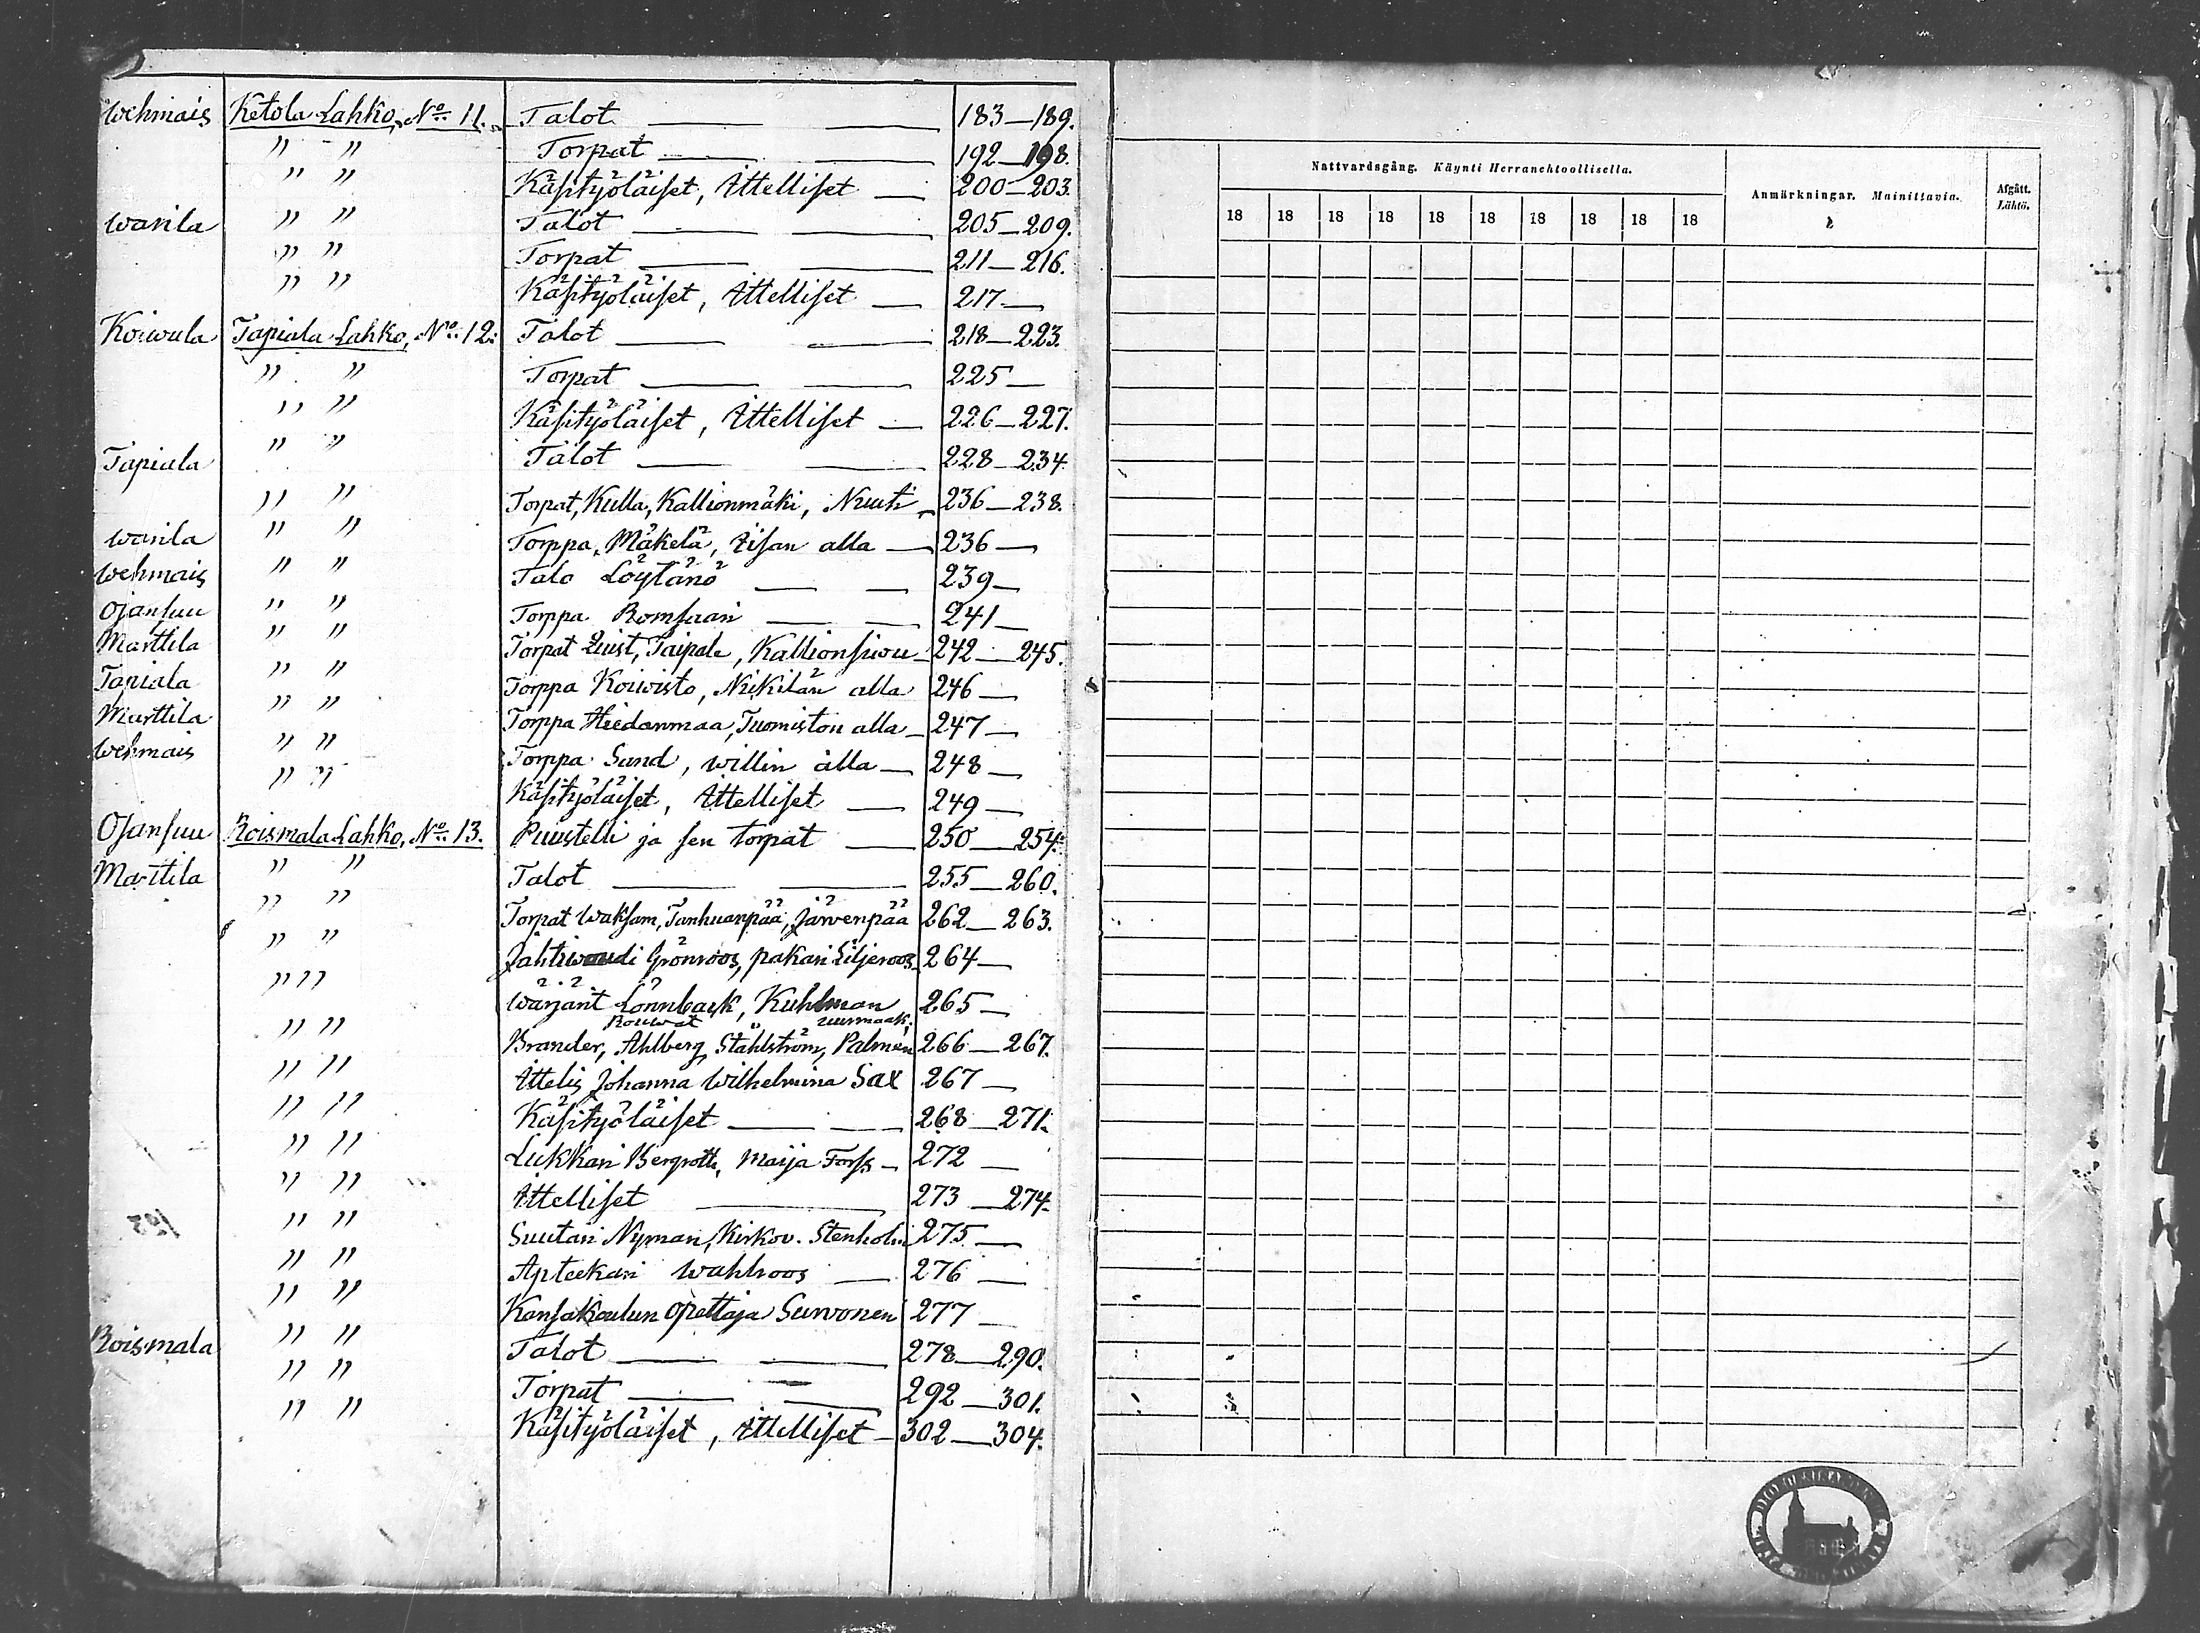 Wehmais Ketola Lahko, No 11. Talot 183—189.
" " Torpat 192—198.
" " Käsityöläiset, Ittelliset 200—203.
Warila " " Talot 205—209.
" " Torpat 211—216.
" " Käsityöläiset, Ittelliset 217—
Koiwula Tapiala Lahko, No 12. Talot 218—223.
" " Torpat 225—
" " Käsityöläiset, Ittelliset 226—227.
Tapiala " " Talot 228—234.
" " Torpat, Kulla, Kallionmäki, Nuuti 236—238.
Warila " " Torppa, Mäkelä, Iisan alla 236—
Wehmais " " Talo Löytänö 239—
Ojansuu " " Torppa Romsaari 241—
Marttila " " Torpat Quist, Taipale, Kallionsuu 242—245.
Tapiala " " Torppa Koiwisto, Nikilän alla 246—
Marttila " " Torppa Hiedanmaa, Tuomiston alla 247—
Wehmais " " Torppa Sund, Willin alla 248—
" " Käsityöläiset, Ittelliset 249—
Ojansuu Roismala Lahko, No 13. Puustelli ja sen torpat 250—254.
Marttila " " Talot 255—260.
" " Torpat Waksam, Tanhuanpää, Järwenpää 262—263.
" " Jahtiwoudi Grönroos, pakari Liljeroos 264—
" " Wärjärit Lönnbäck, Kuhlman 265—
Rouwat
" " Brander, Ahlberg, Ståhlström, Palmen 266—267.
" " Ittelis Johanna Wilhelmina Sax 267—
" " Käsityöläiset 268—271.
" " Lukkari Bergroth, Maija Forss 272—
" " Ittelliset 273—274.
" " Suutari Nyman, Kirkov. Stenholm 275—
" " Apteekari Wahlroos 276—
" " Kansakoulun opettaja Surwonen 277—
Roismala " " Talot 278—290.
" " Torpat 292—301.
" " Käsityöläiset, Ittelliset 302—304.
Nattvardsgång. Käynti Herranehtoollisella.
Anmärkningar. Mainittavia.
Afgått. Lähtö.
18 18 18 18 18 18 18 18 18 18